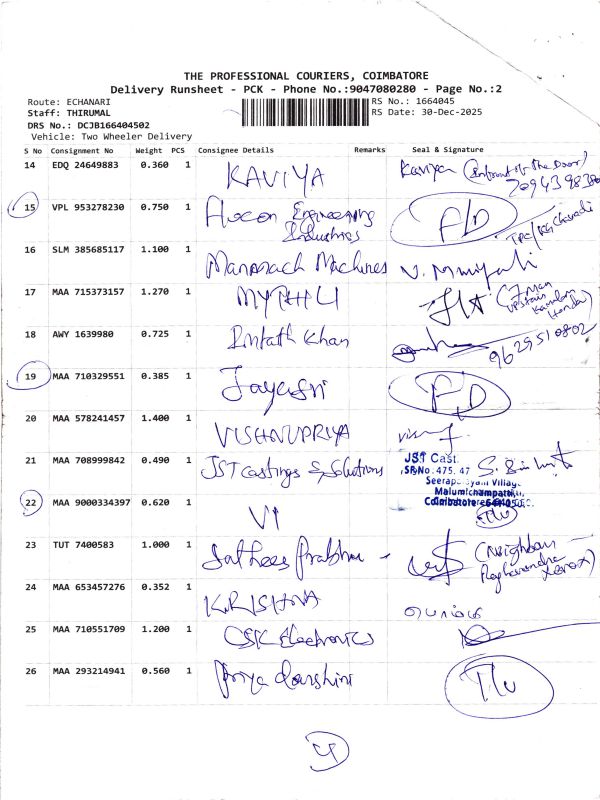 THE PROFESSIONAL COURIERS, COIMBATORE
Delivery Runsheet - PCK - Phone No.:9047080280 - Page No.:2
Route: ECHANARI
Staff: THIRUMAL
DRS No.: DCJB166404502
Vehicle: Two Wheeler Delivery
RS No.: 1664045
RS Date: 30-Dec-2025
S No Consignment No Weight PCS Consignee Details Remarks Seal & Signature
14 EDQ 24649883 0.360 1 KAVIYA Kaviya (Infront of the Door)
15 VPL 953278230 0.750 1 Flocon Engineering
Industries F/D
16 SLM 385685117 1.100 1 Machines
17 MAA 715373157 1.270 1 MYTHILI
18 AWY 1639980 0.725 1 Khan 9629510802
19 MAA 710329551 0.385 1 Jayasri F/D
20 MAA 578241457 1.400 1 VISHNUPRIYA
21 MAA 708999842 0.490 1 JST Castings & Solutions JST Cast
SR No: 475, 47
Village
Malumichampatti,
Coimbatore
22 MAA 9000334397 0.620 1 VI
23 TUT 7400583 1.000 1 Sathees Prabhu (Neighbour
Raghavendra
Xerox)
24 MAA 653457276 0.352 1 KRISHNA
25 MAA 710551709 1.200 1 CSK Electronics
26 MAA 293214941 0.560 1 Priya darshini
4